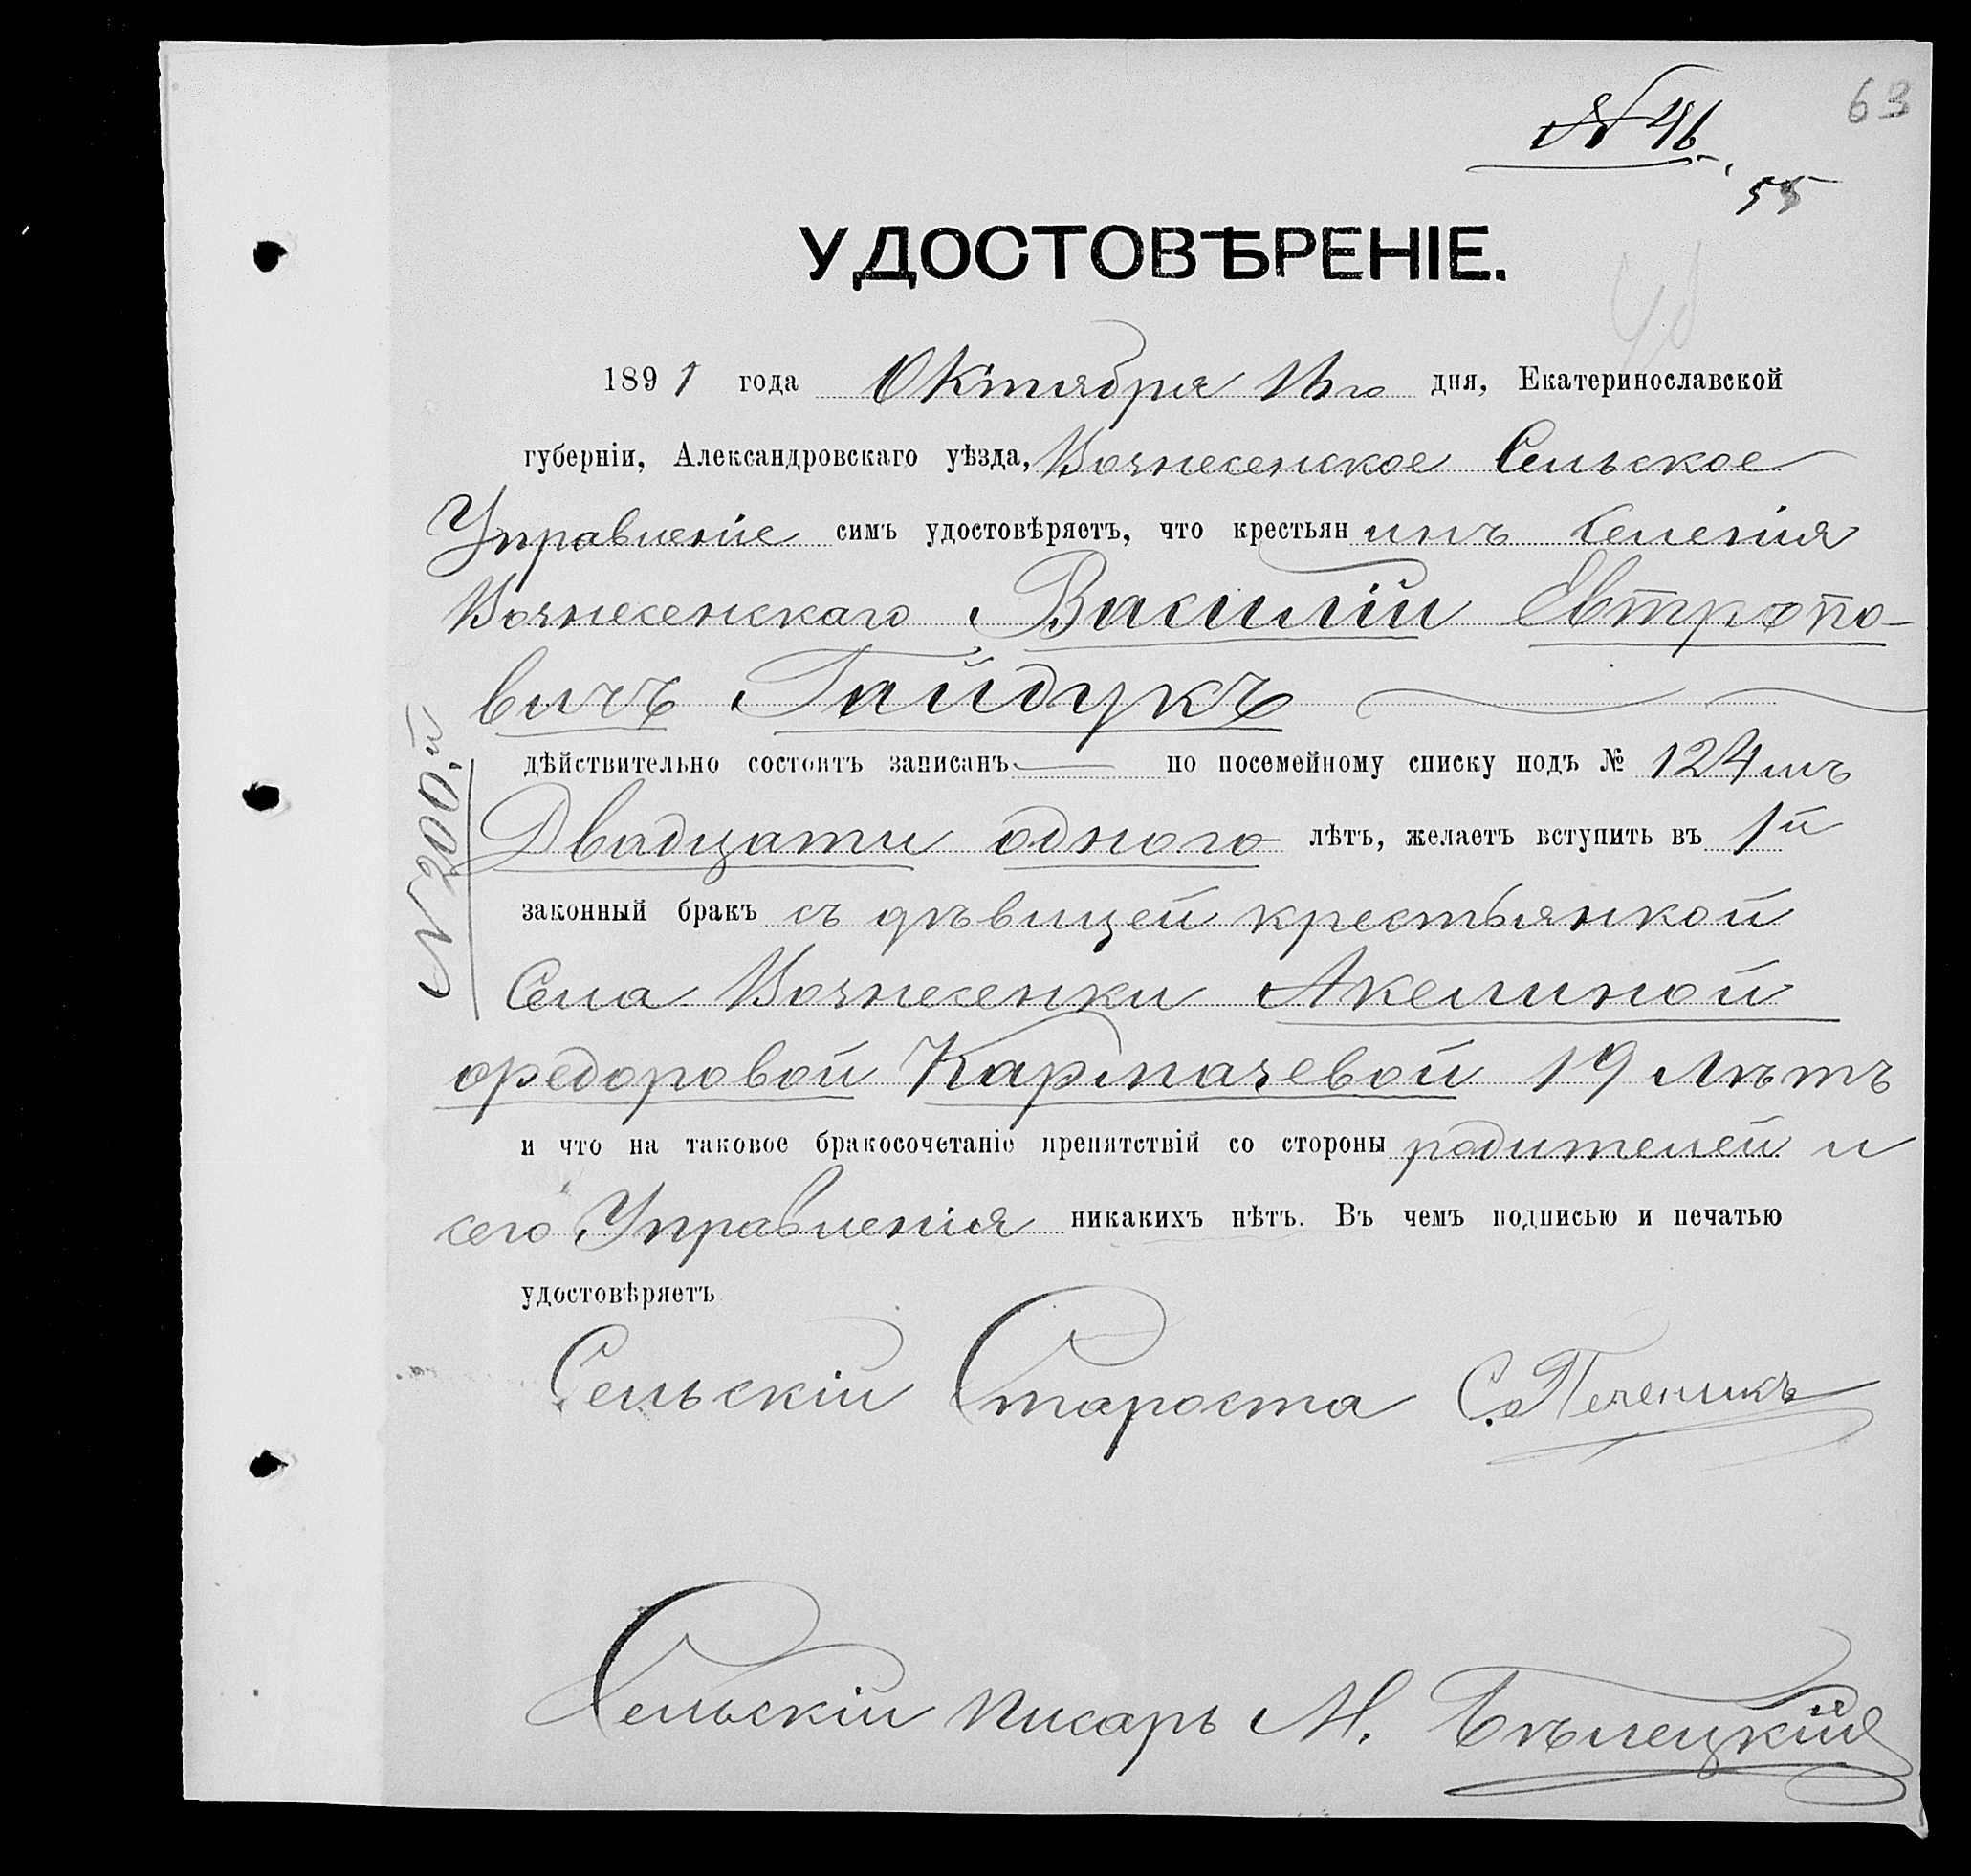 63
№ 46
55
УДОСТОВѢРЕНІЕ.
1891 года Октября дня, Екатеринославской
губерніи, Александровскаго уѣзда, Вознесенское Сельское
Управленіе симъ удостовѣряетъ, что крестьянинъ селенія
Вознесенскаго Василій Евтропо-
вичъ Гайдукъ
дѣйствительно состоитъ записанъ по посемейному списку подъ № 124мъ
Двадцати одного лѣтъ, желаетъ вступить въ 1й
законный бракъ съ дѣвицей крестьянкой
Села Вознесенки Акелиной
Федоровой Карпачевой 19 лѣтъ
и что на таковое бракосочетаніе препятствій со стороны родителей и
сего Управленія никакихъ нѣтъ. Въ чемъ подписью и печатью
удостовѣряетъ
Сельскій Староста С.
Сельскій писарь М. Бѣлецкій
№ 200.й